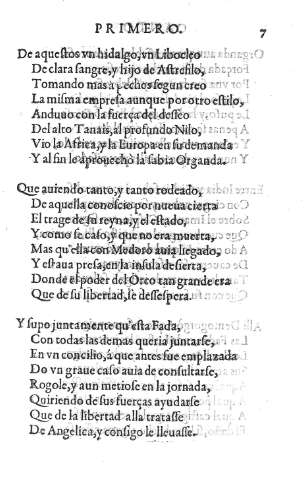 PRIMERO. 7
De aquestos vn hidalgo, vn Libocleo
De clara sangre, y hijo de Astrefilo,
Tomando mas a pechos segun creo
La misma empresa aunque por otro estilo,
Anduuo con la fuerça del desseo
Del alto Tanais, al profundo Nilo,
Vio la Africa, y la Europa en su demanda
Y al fin le aprouechò la sabia Organda.
Que auiendo tanto, y tanto rodeado,
De aquella conoscio por nueua cierta
El trage de su reyna, y el estado,
Y como se caso, y que no era muerta,
Mas qu'ella con Medoro auia llegado,
Y estaua presa, en la insula desierta,
Donde el poder del Orco tan grande era
Que de su libertad, se dessespera.
Y supo juntamente qu'esta Fada,
Con todas las demas queria juntarse,
En vn concilio, á que antes fue emplazada
Do vn graue caso auia de consultarse,
Rogole, y aun metiose en la jornada,
Quiriendo de sus fuerças ayudarse
Que de la libertad alla tratasse
De Angelica, y consigo le lleuasse.